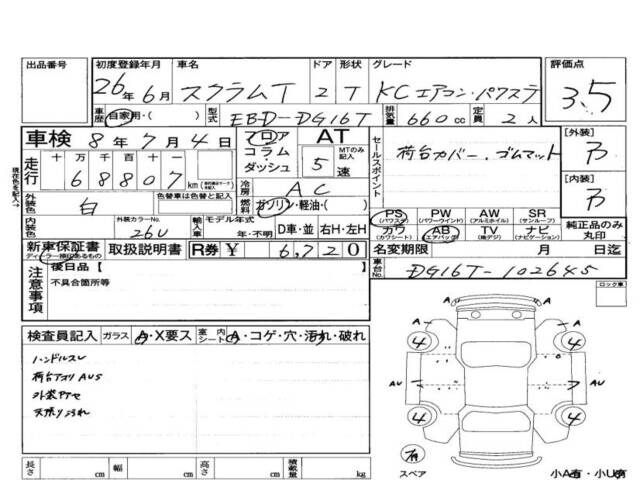 出品番号 初度登録年月 車名 ドア 形状 グレード 評価点
26年6月 スクラムT 2 T KCエアコン・パワステ 3.5
車歴 自家用・( ) 型式 EBD-DG16T 排気量 660cc 定員 2人
車検 8年7月4日 フロア AT
コラム MTのみ記入
ダッシュ 5速
走行 十 万 千 百 十 一
68807 km
冷房 AC
セールスポイント 荷台カバー. ゴムマット
[外装]
[内装]
現在色を記入
外装色 白 色替車は色替と記入 燃料 ガソリン・軽油・( )
内装色 外装カラーNo. 26U 輸入車 モデル年式 年・不明 D車・並 右H・左H
PS PW AW SR
(パワステ) (パワーウインド) (アルミホイル) (サンルーフ)
カワ AB TV ナビ
(カワシート) (エアバッグ) (地デジ) (ナビゲーション)
純正品のみ丸印
新車保証書 取扱説明書 R券 ¥ 6,720
ディーラー捺印あるもの
名変期限 月 日迄
注意事項 後日品【 】
不具合箇所等
車台No. DG16T-102645
ロック車
検査員記入 ガラス A・X要ス 室内シート A・コゲ・穴・汚れ・破れ
ハンドルスレ
荷台アオリAUS
天張り汚れ
A A
4 4
AU AU
4 4
スペア
長さ cm 幅 cm 高さ cm 積載量 kg
小A有・小U有